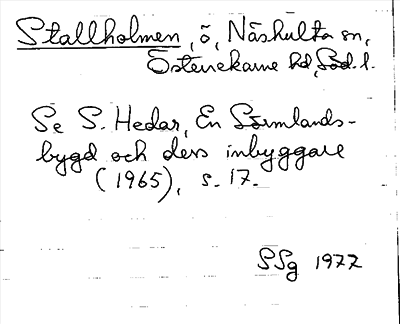 Stallholmen, ö, Näshulta sn,
Österrekarne hd, Söd. l.
Se S. Hedar, En Sörmlands-
bygd och dess inbyggare
(1965), s. 17.
SSg 1977